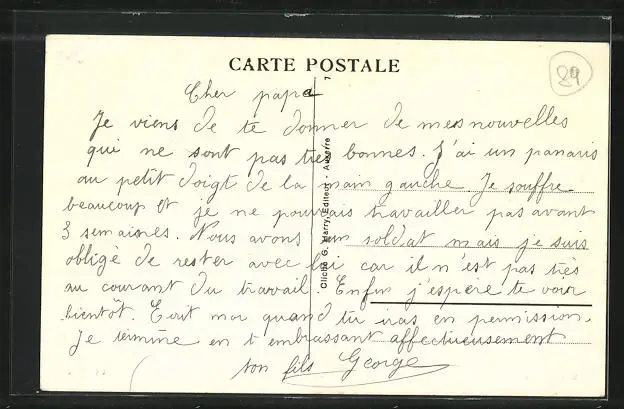 CARTE POSTALE
89
Cher papa
Je viens de te donner de mes nouvelles
qui ne sont pas très bonnes. J'ai un panaris
au petit doigt de la main gauche. Je souffre
beaucoup et je ne pourrais travailler pas avant
3 semaines. Nous avons un soldat mais je suis
obligé de rester avec lui car il n'est pas très
au courant du travail. Enfin j'espère te voir
bientôt. Ecrit moi quand tu iras en permission.
Je termine en t embrassant affectueusement
ton fils George
Cliché G. Harry, Editeur - Auxerre